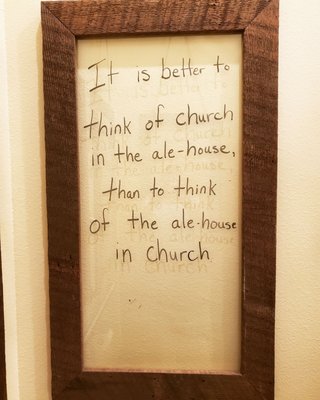 It is better to
think of church
in the ale-house,
than to think
of the ale-house
in church